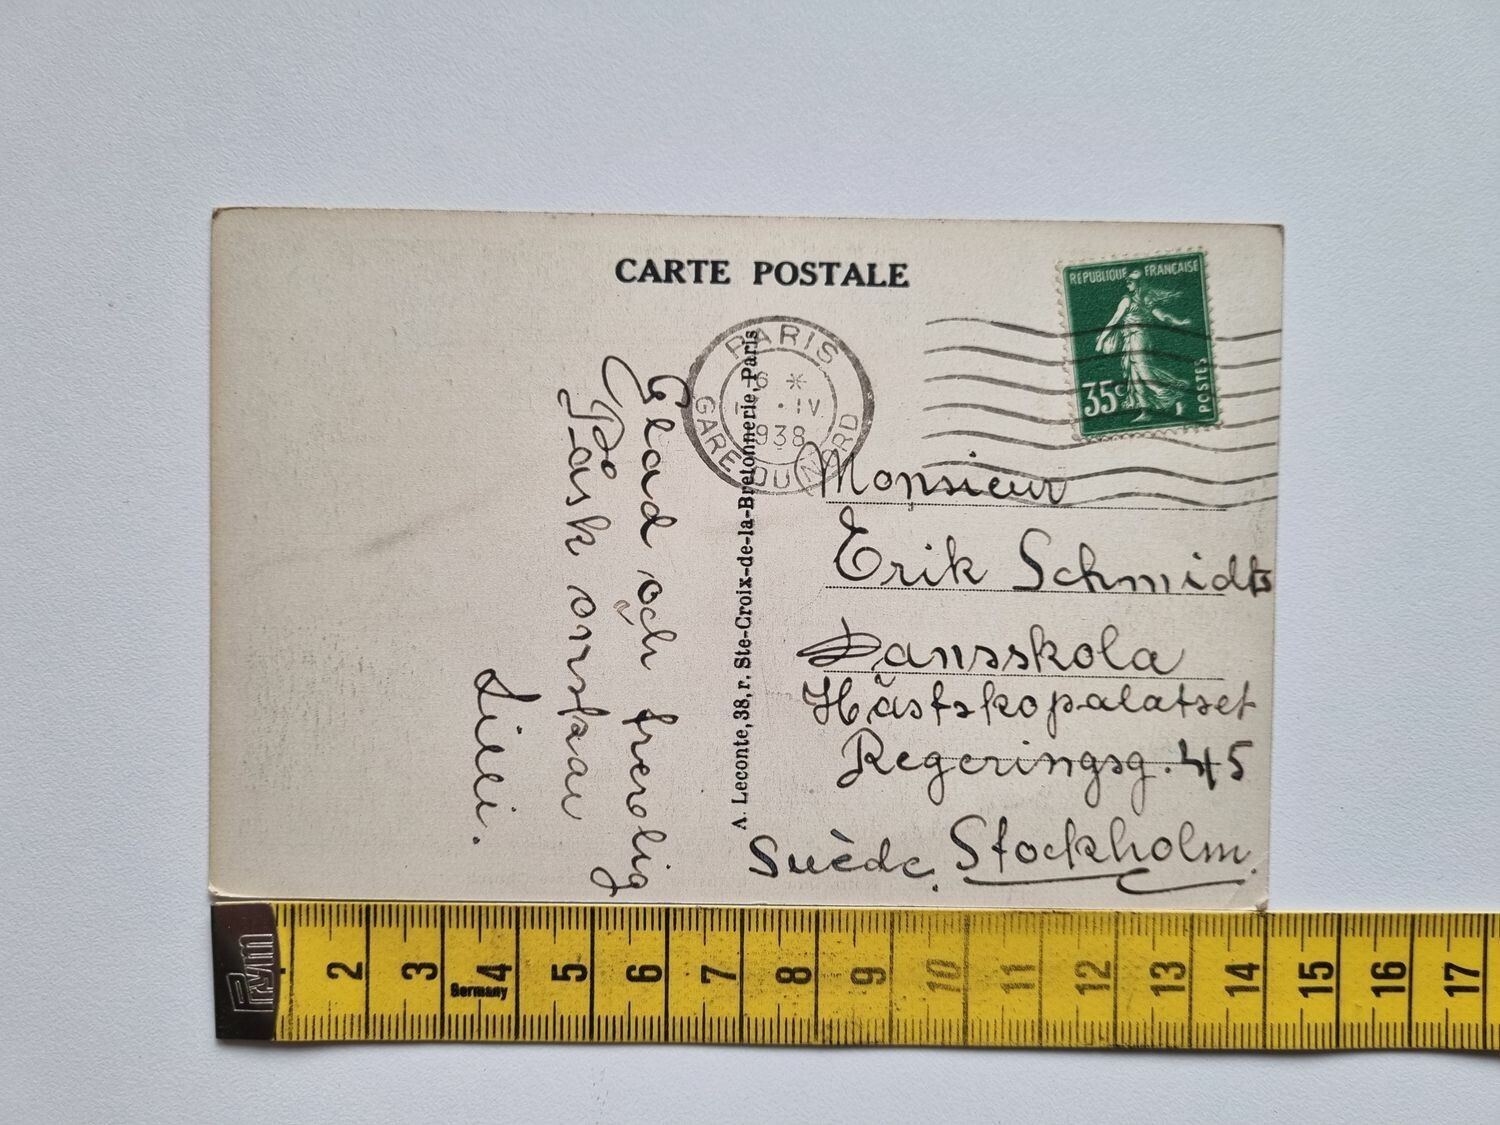 CARTE POSTALE
REPUBLIQUE FRANÇAISE
35c
POSTES
PARIS
6 *
IV
1938
GARE DU NORD
A. Leconte, 38, r. Ste-Croix-de-la-Bretonnerie, Paris
Glad och frerolig
Påsk önskar
Lilli.
Monsieur
Erik Schmidts
Dansskola
Hästskopalatset
Regeringsg. 45
Suède. Stockholm.
Prym
2 3 4 5 6 7 8 9 10 11 12 13 14 15 16 17
Germany